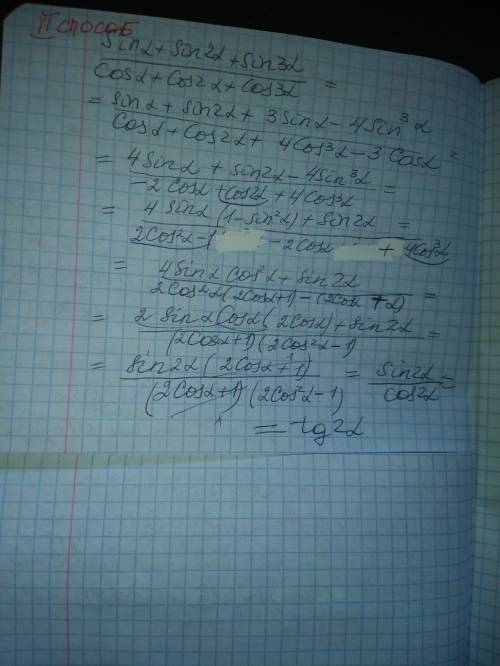 II способ
sinα + sin2α + sin3α
cosα + cos2α + cos3α =
= sinα + sin2α + 3sinα - 4sin³α
cosα + cos2α + 4cos³α - 3cosα =
= 4sinα + sin2α - 4sin³α
-2cosα + cos2α + 4cos³α =
= 4sinα (1 - sin²α) + sin2α =
2cos²α - 1 - 2cosα + 4cos³α
= 4sinα cos²α + sin2α
2cos²α (2cosα + 1) - (2cosα + 1) =
= 2 sinα cosα (2cosα) + sin2α
(2cosα + 1) (2cos²α - 1) =
= sin2α (2cosα + 1) = sin2α =
(2cosα + 1) (2cos²α - 1) cos2α
= tg2α